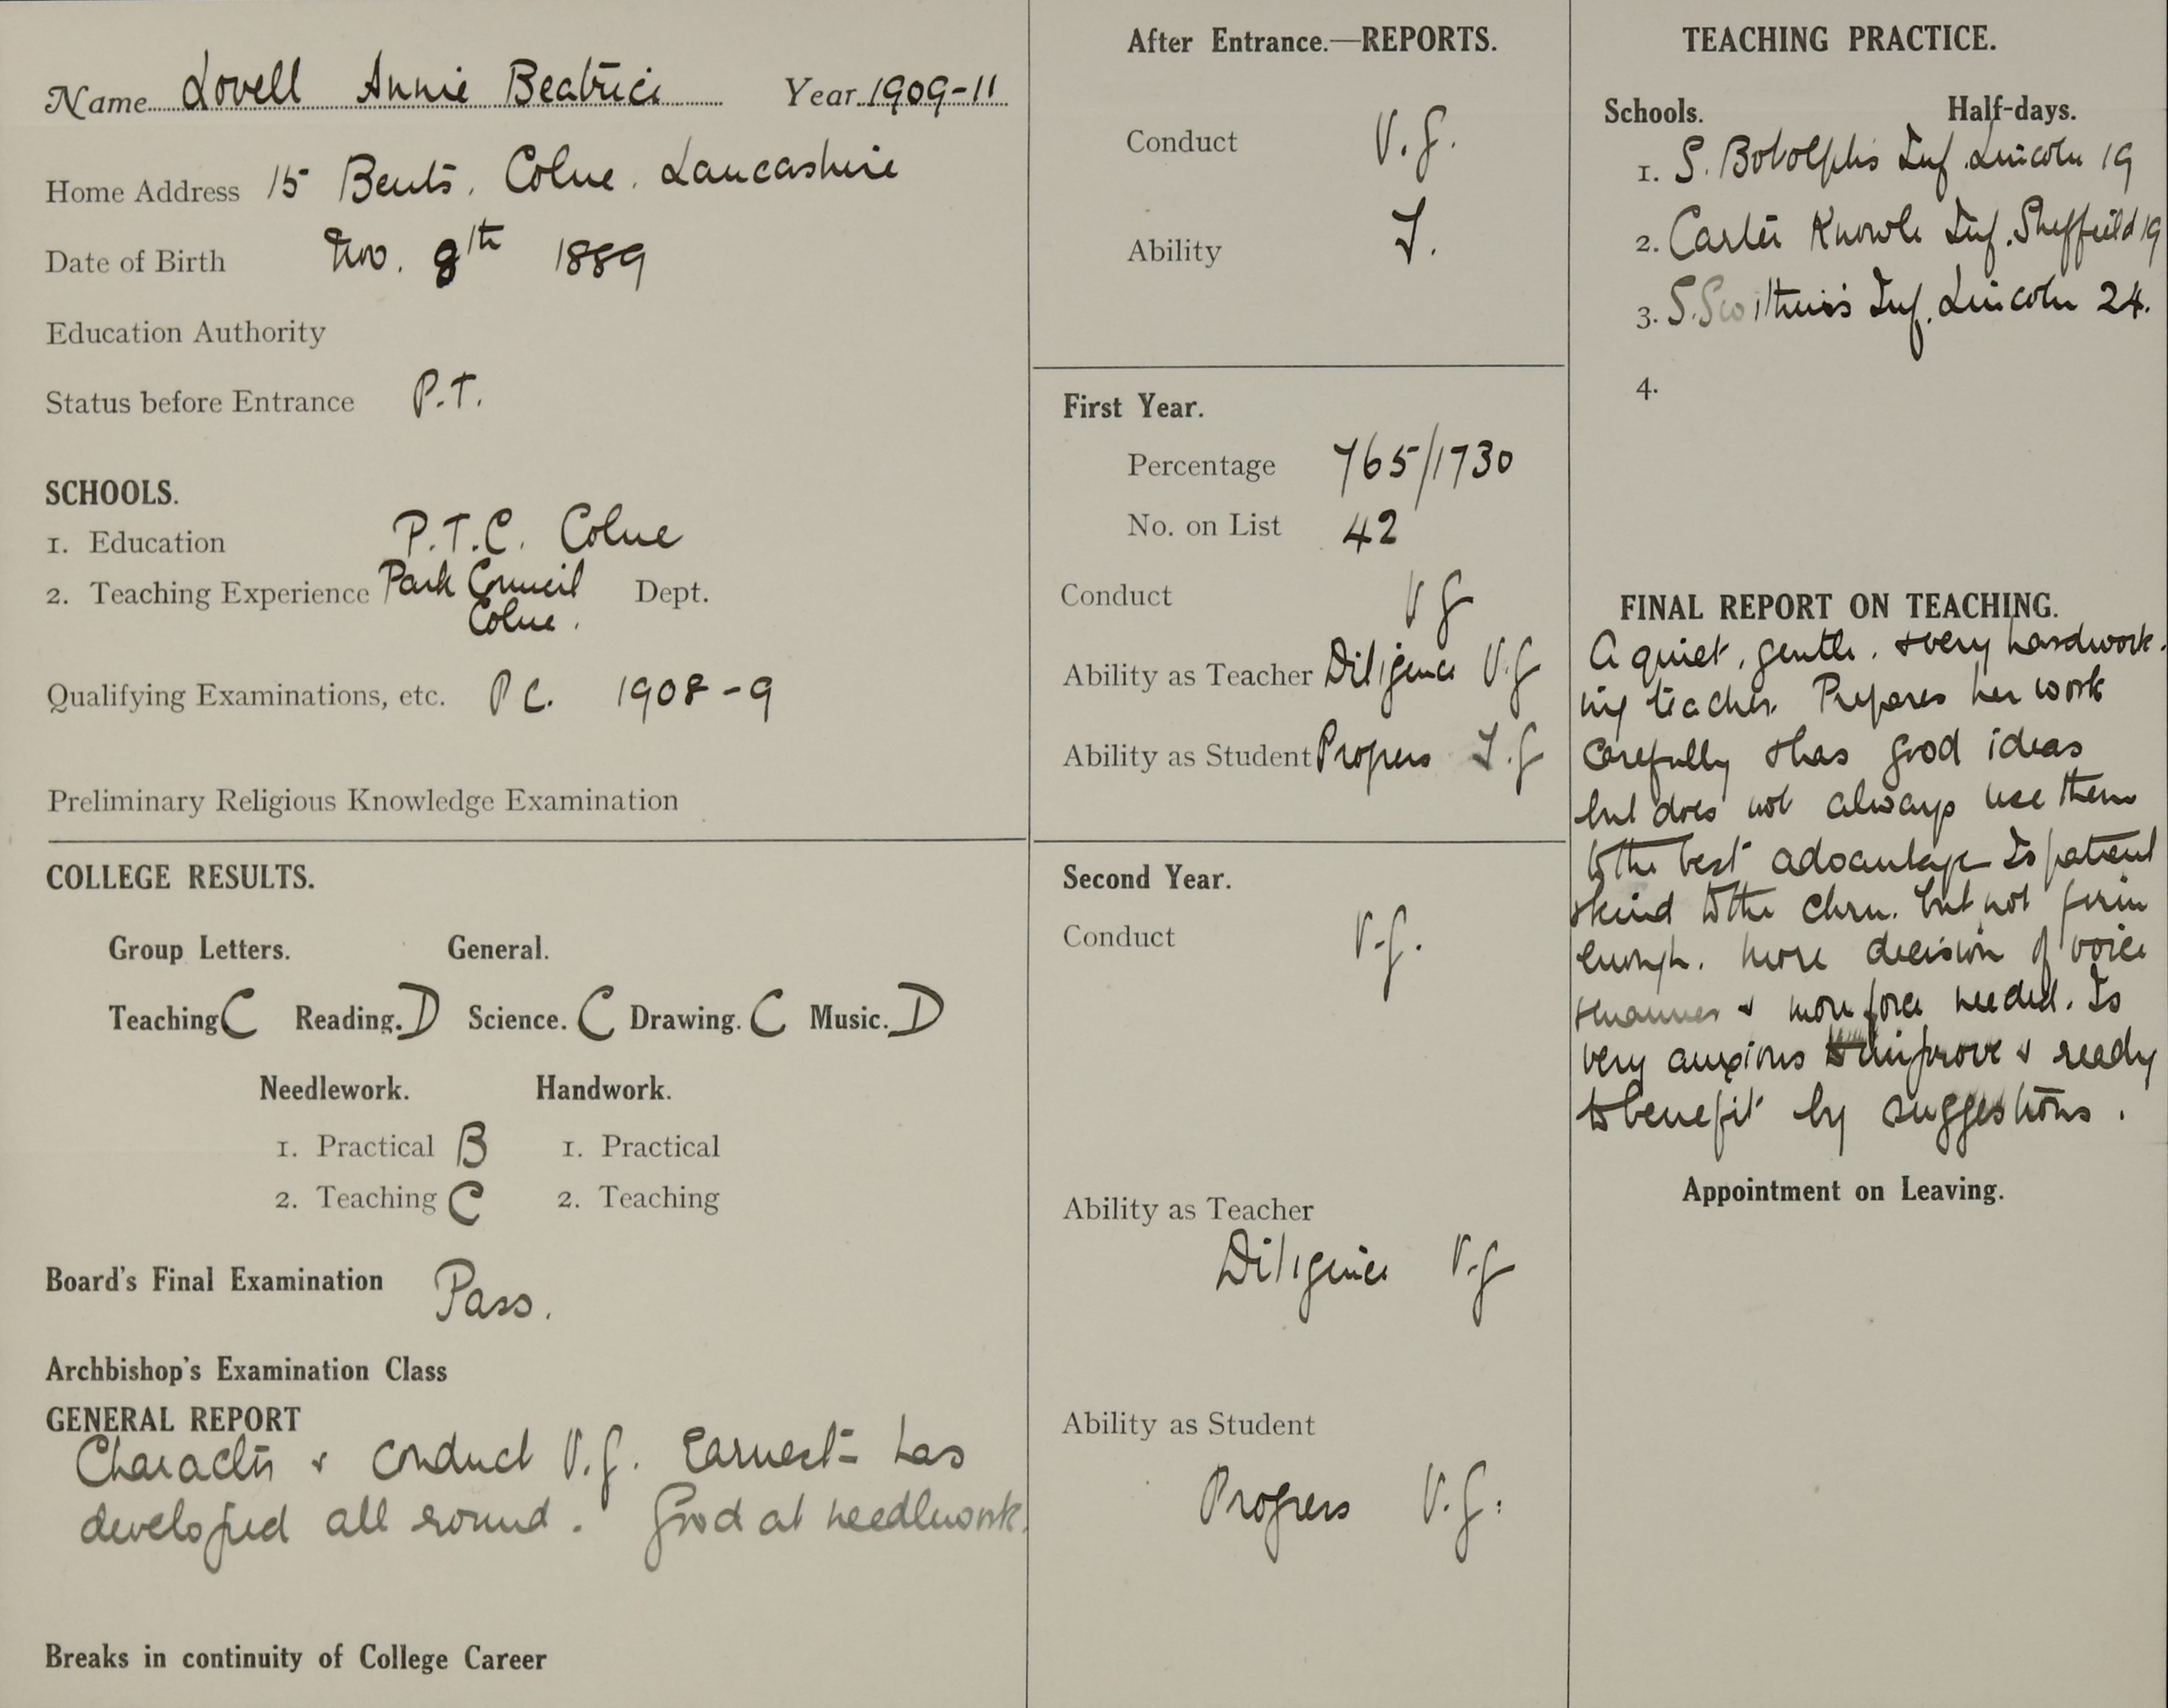 Name Lovell Annie Beatrice Year 1909-11
Home Address 15 Bents. Colne. Lancashire
Date of Birth Nov. 8th 1889
Education Authority
Status before Entrance P.T.
SCHOOLS.
1. Education P.T.C. Colne
2. Teaching Experience Park Council Dept.
Colne.
Qualifying Examinations, etc. P C. 1908-9
Preliminary Religious Knowledge Examination
COLLEGE RESULTS.
Group Letters. General.
Teaching C Reading. D Science. C Drawing. C Music. D
Needlework. Handwork.
1. Practical B 1. Practical
2. Teaching C 2. Teaching
Board's Final Examination Pass.
Archbishop's Examination Class
GENERAL REPORT
Character & conduct V.g. Earnest - has
developed all round. Good at needlework.
Breaks in continuity of College Career
After Entrance.—REPORTS.
Conduct V.g.
Ability F.
First Year.
Percentage 765/1730
No. on List 42
Conduct V g
Ability as Teacher Diligence V.g
Ability as Student Progress F.g
Second Year.
Conduct V.g.
Ability as Teacher
Diligence V.g
Ability as Student
Progress V.g.
TEACHING PRACTICE.
Schools. Half-days.
1. S. Botolph's Inf. Lincoln 19
2. Carter Knowle Inf. Sheffield 19
3. S. Inf. Lincoln 24.
4.
FINAL REPORT ON TEACHING.
A quiet, gentle, & very hardwork-
ing teacher. Prepares her work
carefully & has good ideas
but does not always use them
to the best advantage. Is patient
& kind to the chrn. but not firm
enough. more decision of voice
& manner & more force needed. Is
very anxious to improve & ready
to benefit by suggestions.
Appointment on Leaving.